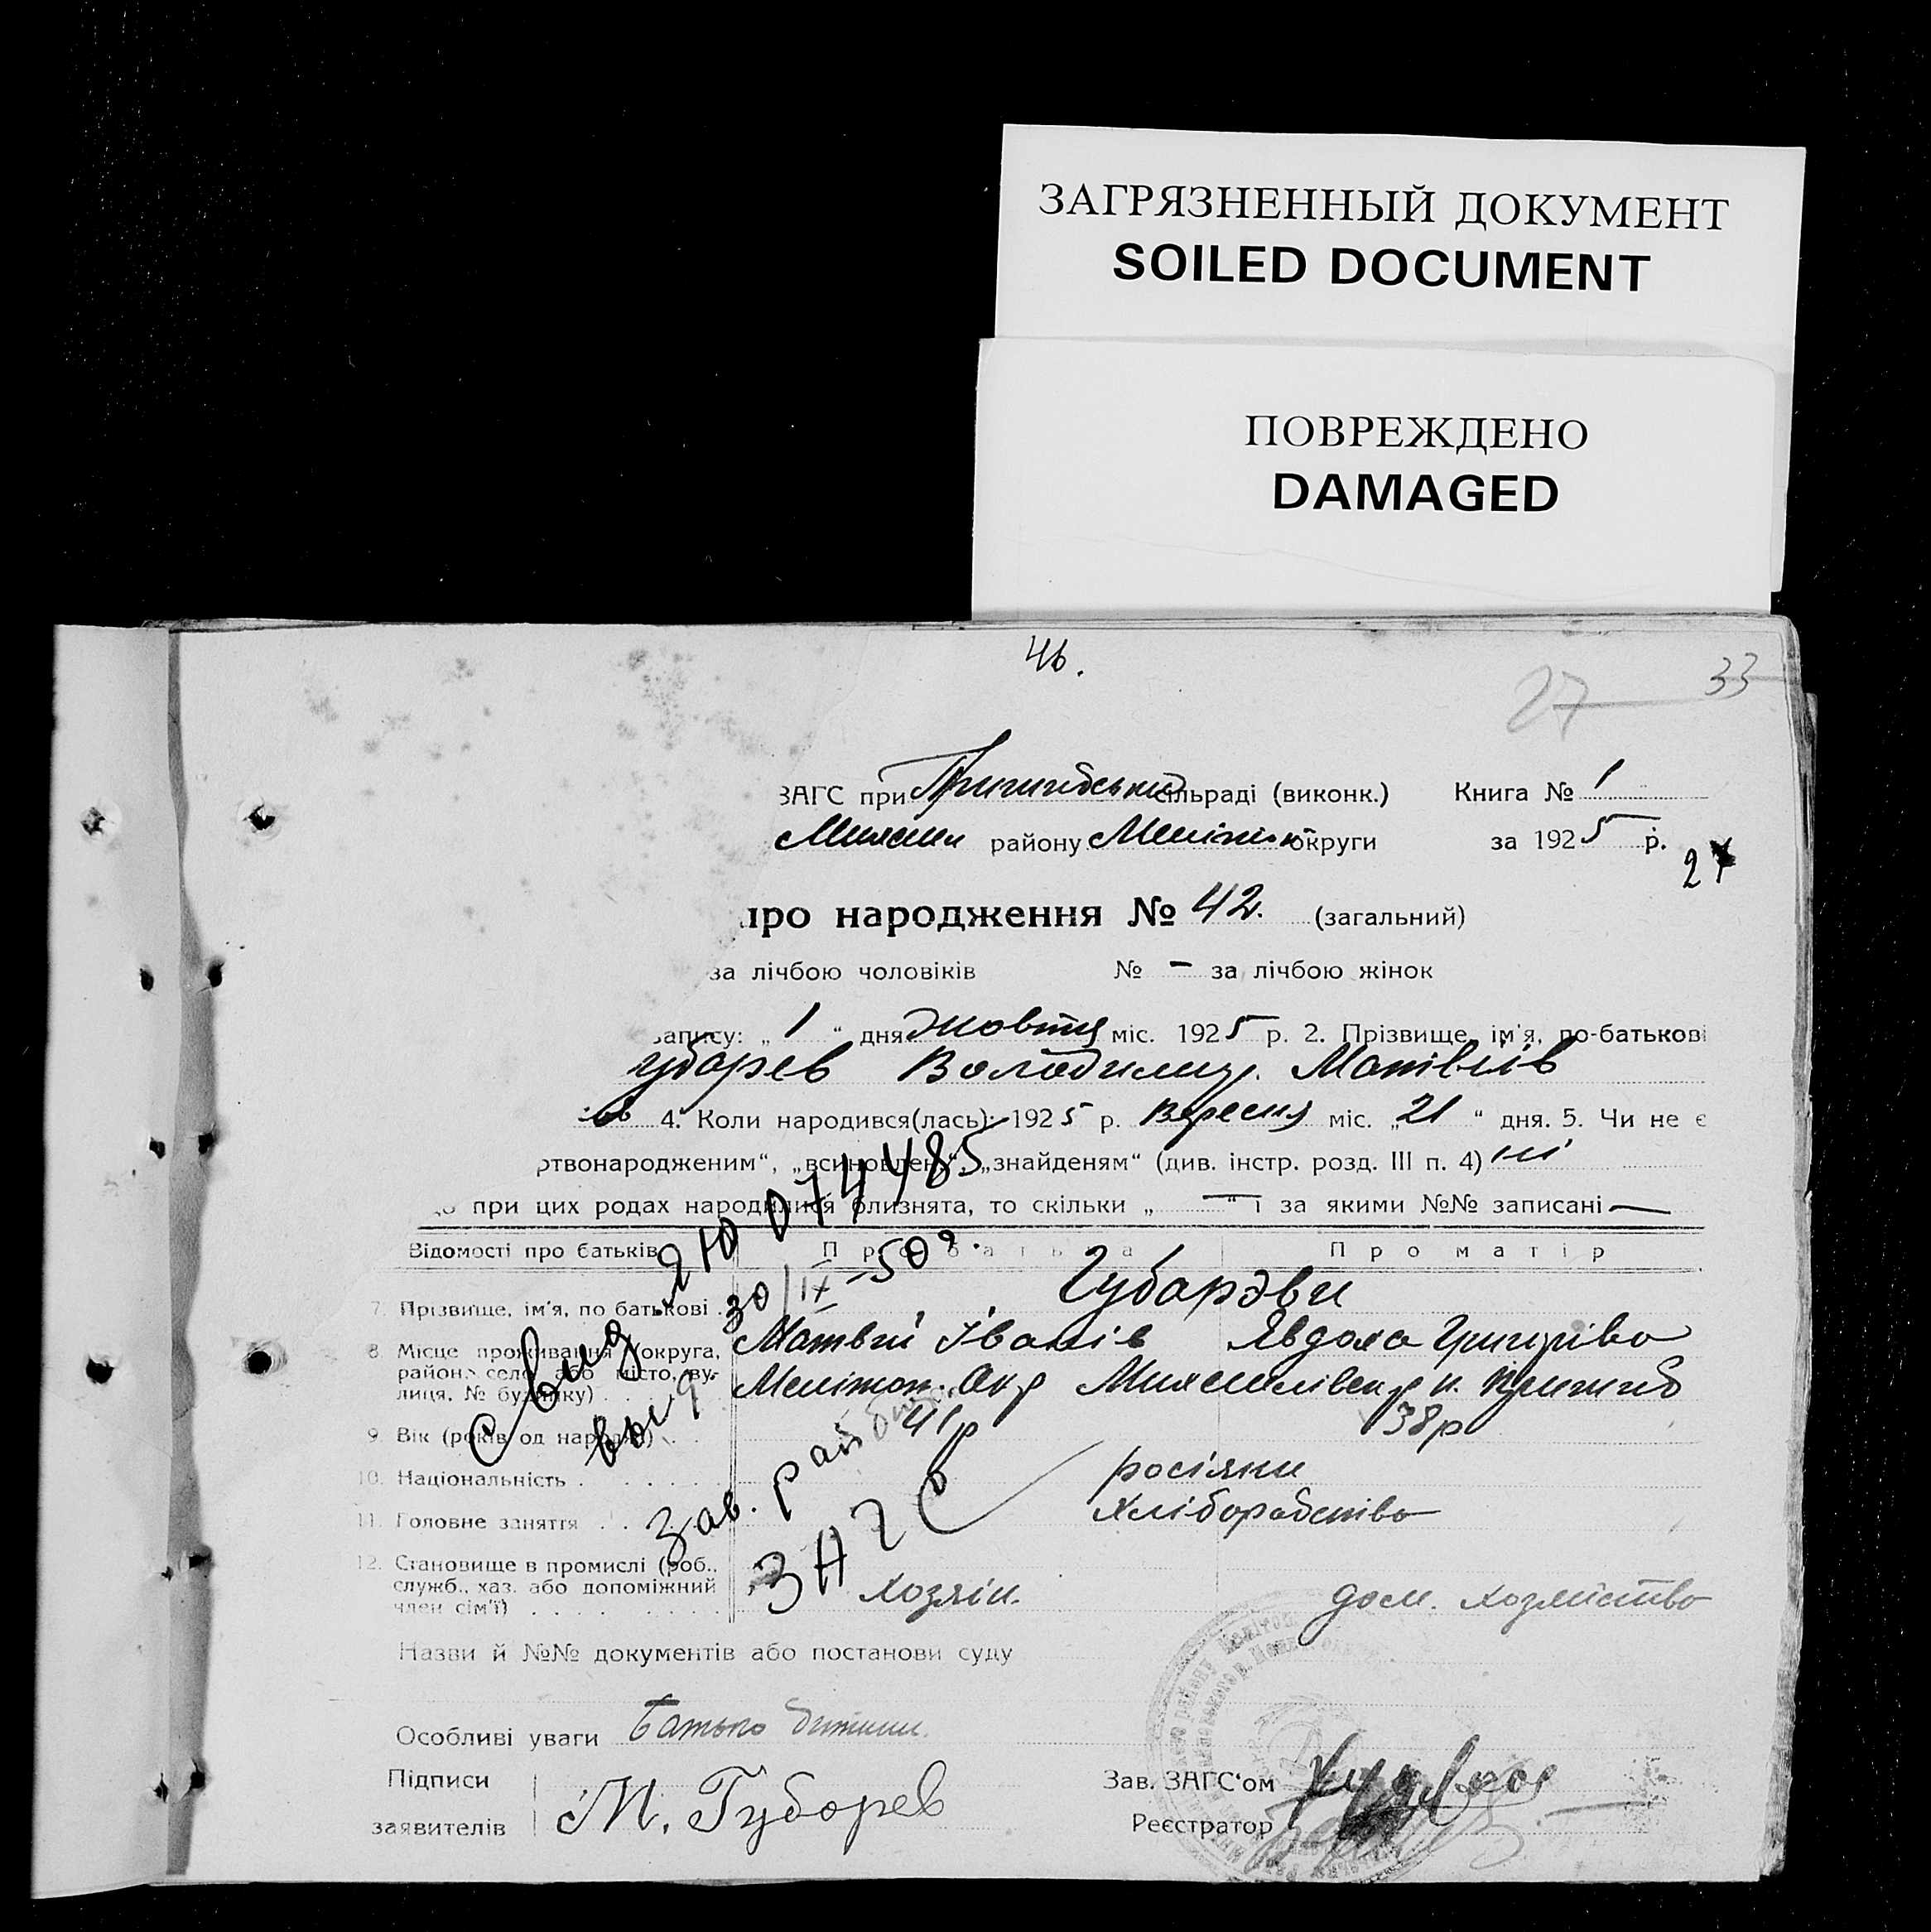 ЗАГРЯЗНЕННЫЙ ДОКУМЕНТ
SOILED DOCUMENT
ПОВРЕЖДЕНО
DAMAGED
46.
27 33
ЗАГС при сільраді (виконк.) Книга № 1
району округи за 1925 р.
27
про народження № 42. (загальний)
за лічбою чоловіків № – за лічбою жінок
запису: „ 1 “ дня жовтня міс. 1925 р. 2. Прізвище, ім'я, по-батькові
Губарев Володимир. Матівіїв
4. Коли народився(лась): 1925 р. Вересня міс. „21 “ дня. 5. Чи не є
ртвонародженим“, „всиновлен.“, „знайденям“ (див. інстр. розд. III п. 4) ні
при цих родах народилися близнята, то скільки „ — “ і за якими №№ записані —
Відомості про батьків Про батька Про матір
7. Прізвище, ім'я, по батькові . Губарэви
Матвій Іванів Явдоха Григорівно
8. Місце проживання (округа, район, село або місто, вулиця, № будинку) . . Мелітоп. Окр
9. Вік (років од народж.) . . 41р 38р
10. Національність . . . . . . росіяни
11. Головне заняття . . хліборобство
12. Становище в промислі (роб., служб., хаз. або допоміжний член сім'ї) . . . . хозяїн. дом. хозяйство
Свид 2Ю 074485
выд 30/IX–50г.
Зав. рай
ЗАГС
Назви й №№ документів або постанови суду
Особливі уваги Батько дитини
Підписи заявителів М. Губарев
Зав. ЗАГС'ом
Реєстратор